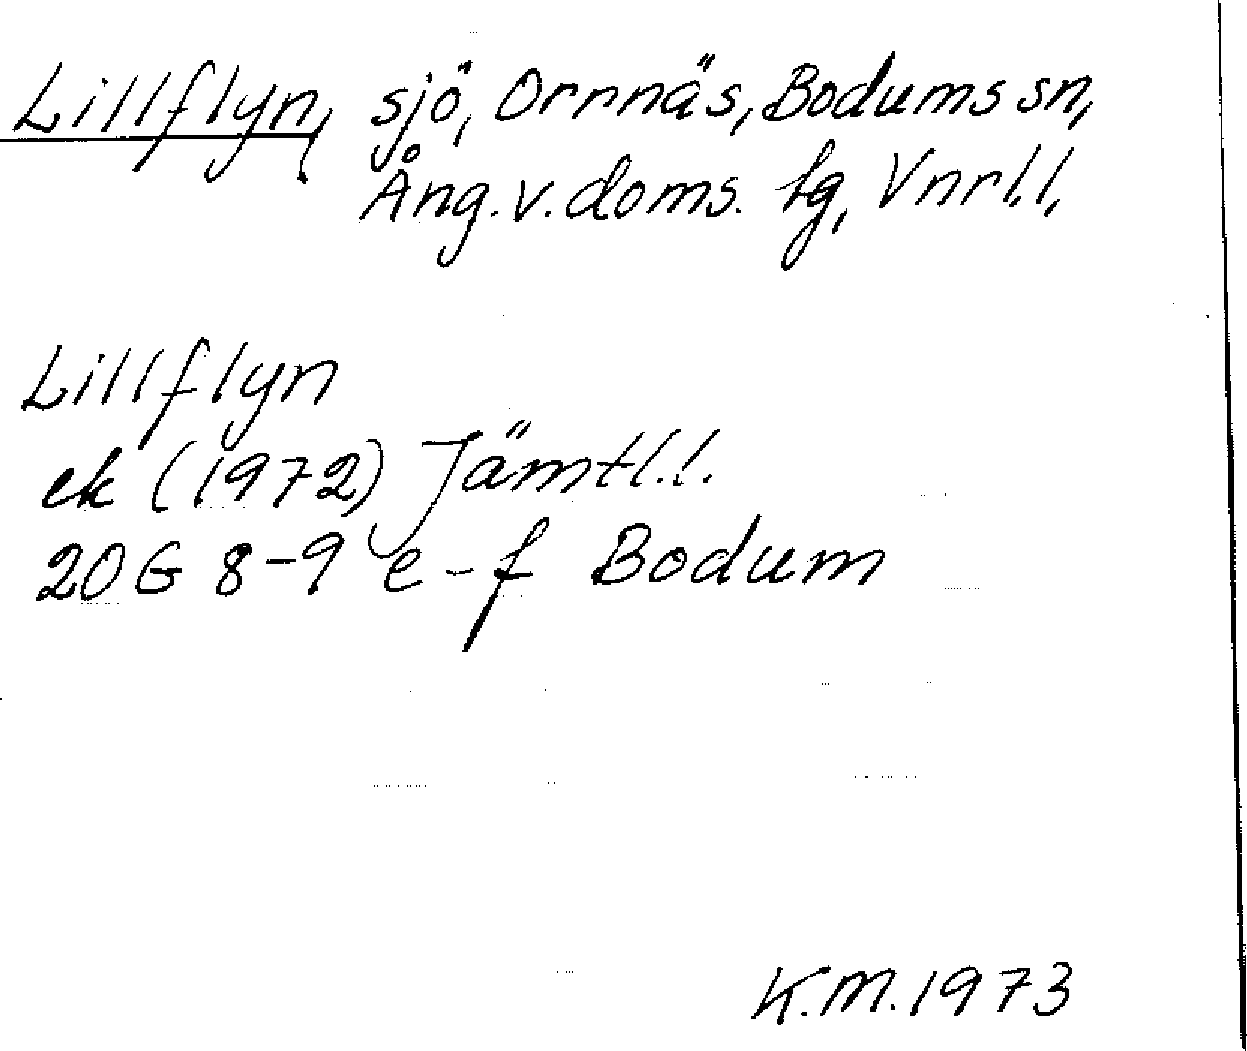 Lillflyn, sjö, Ornnäs, Bodums sn,
Ång. v. doms. tg, Vnrl.l,
Lillflyn
ek (1972) Jämtl.l.
20G 8-9 e-f Bodum
K.M. 1973